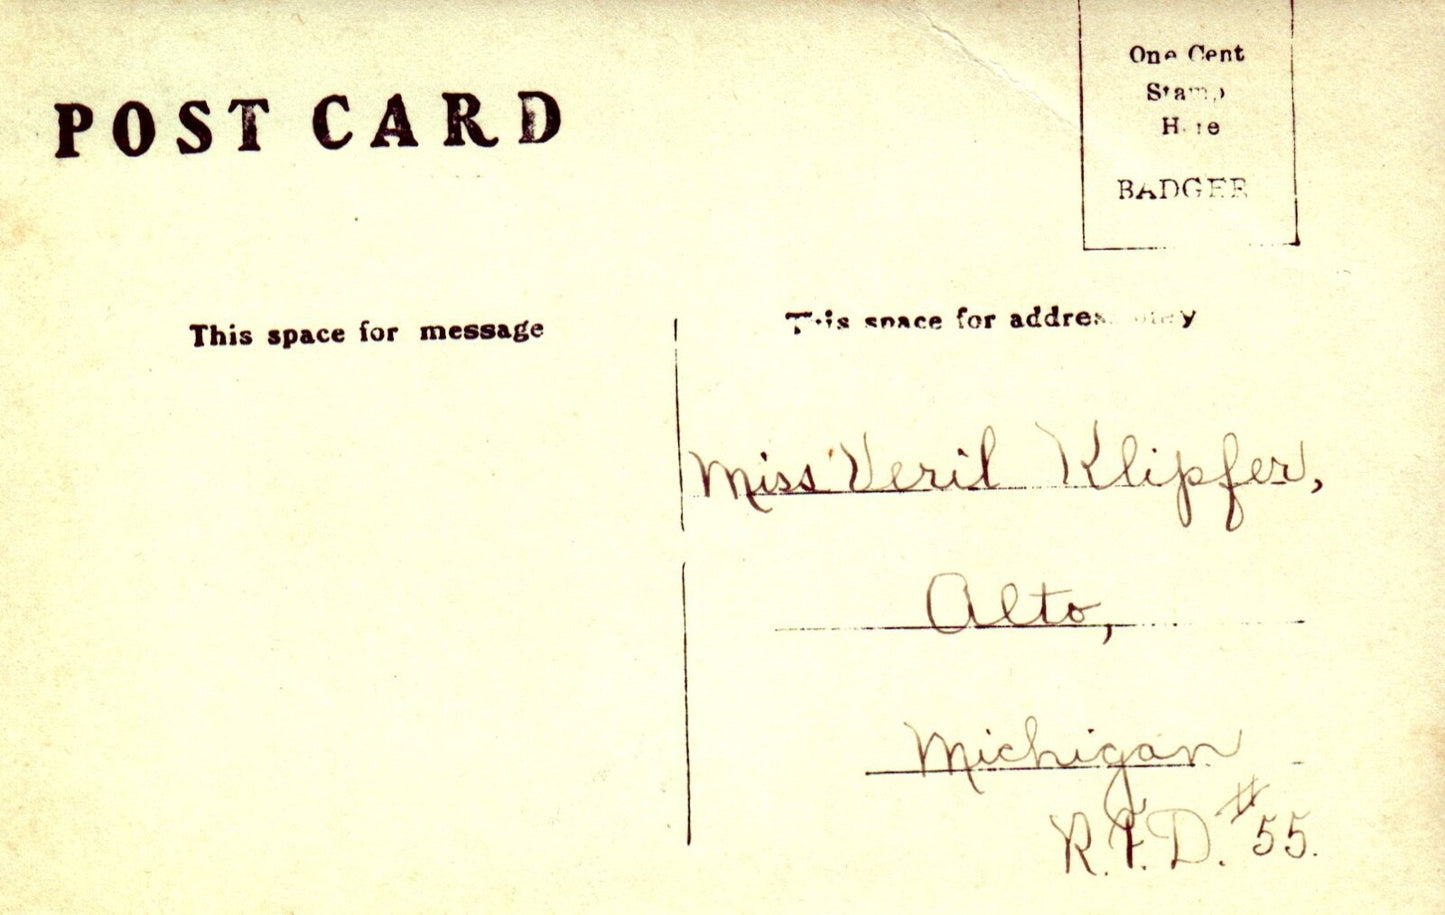 POST CARD
One Cent
Stamp
Here
BADGER
This space for message
This space for address only
Miss Veril Klipfer,
Alto,
Michigan
R.F.D. #55.